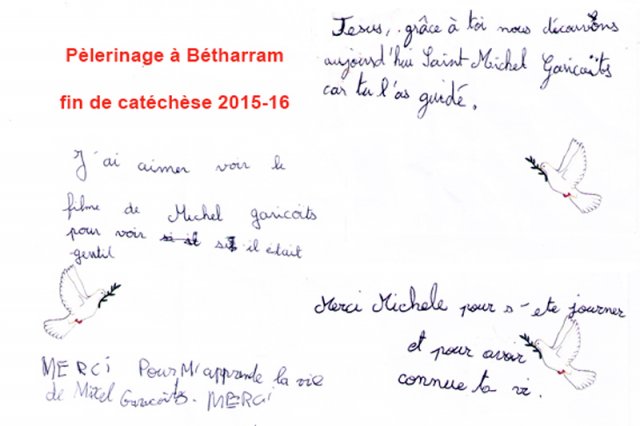 Pèlerinage à Bétharram
fin de catéchèse 2015-16
Jesus, grâce à toi nous découvrons
aujourd'hui Saint Michel Garicoïts
car tu l'as guidé.
J'ai aimer voir le
filme de Michel garicoits
pour voir si il était
gentil
Merci Michele pour s-ete journer
et pour avoir
connue ta vi.
MERCi Pour M'apprende la vie
de Mitel Garicoits. MERCi